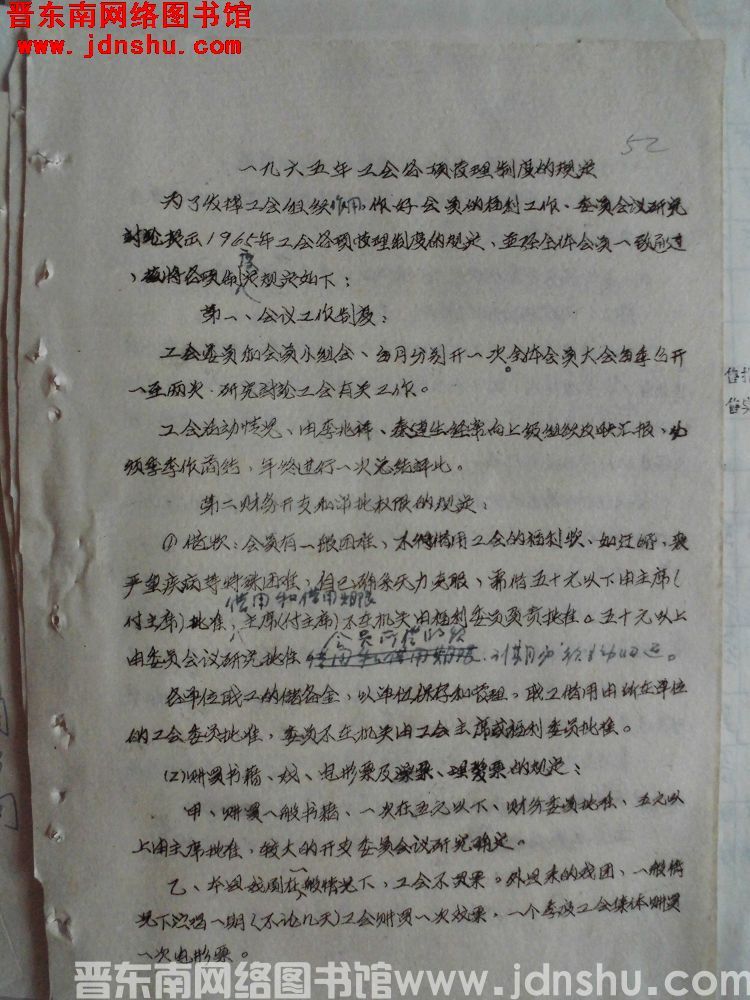 晋东南网络图书馆
www.jdnshu.com
52
一九六五年工会各项管理制度的规定
为了发挥工会组织作用,作好会员的福利工作、委员会议研究
讨论提示1965年工会各项管理制度的规定、并经全体会员一致通过
、兹将各项制度规定如下:
第一、会议工作制度:
工会委员和会员小组会、每月分别开一次。全体会员大会每季召开
一至两次.研究讨论工会有关工作。
工会活动情况、由李兆祥、秦道生经常向上级组织反映汇报、
须季季作简结,年终进行一次总结评比。
第二财务开支和审批权限的规定:
(1)借款:会员有一般困难,不得借用工会的福利款、如迁婚、丧
严重疾病等特殊困难,自己确系无力克服、需借五十元以下由主席(
借用和借用期限
付主席)批准,主席(付主席)不在机关由福利委员负责批准。五十元以上
会员所借的款
由委员会议研究批准 借用和借用期限.到期必须主动归还。
各单位职工的储备金,以单位保存和管理。职工借用由所在单位
的工会委员批准,委员不在机关由工会主席或福利委员批准。
(2)购买书籍、戏、电影票及澡票、理发票的规定:
甲、购买一般书籍、一次在五元以下、财务委员批准、五元以
上由主席批准,较大的开支委员会议研究确定。
乙、本县戏团在一般情况下,工会不买票。外县来的戏团,一般情
况下以唱一期(不论几天)工会购买一次戏票,一个季度工会集体购买
一次电影票。
晋东南网络图书馆www.jdnshu.com